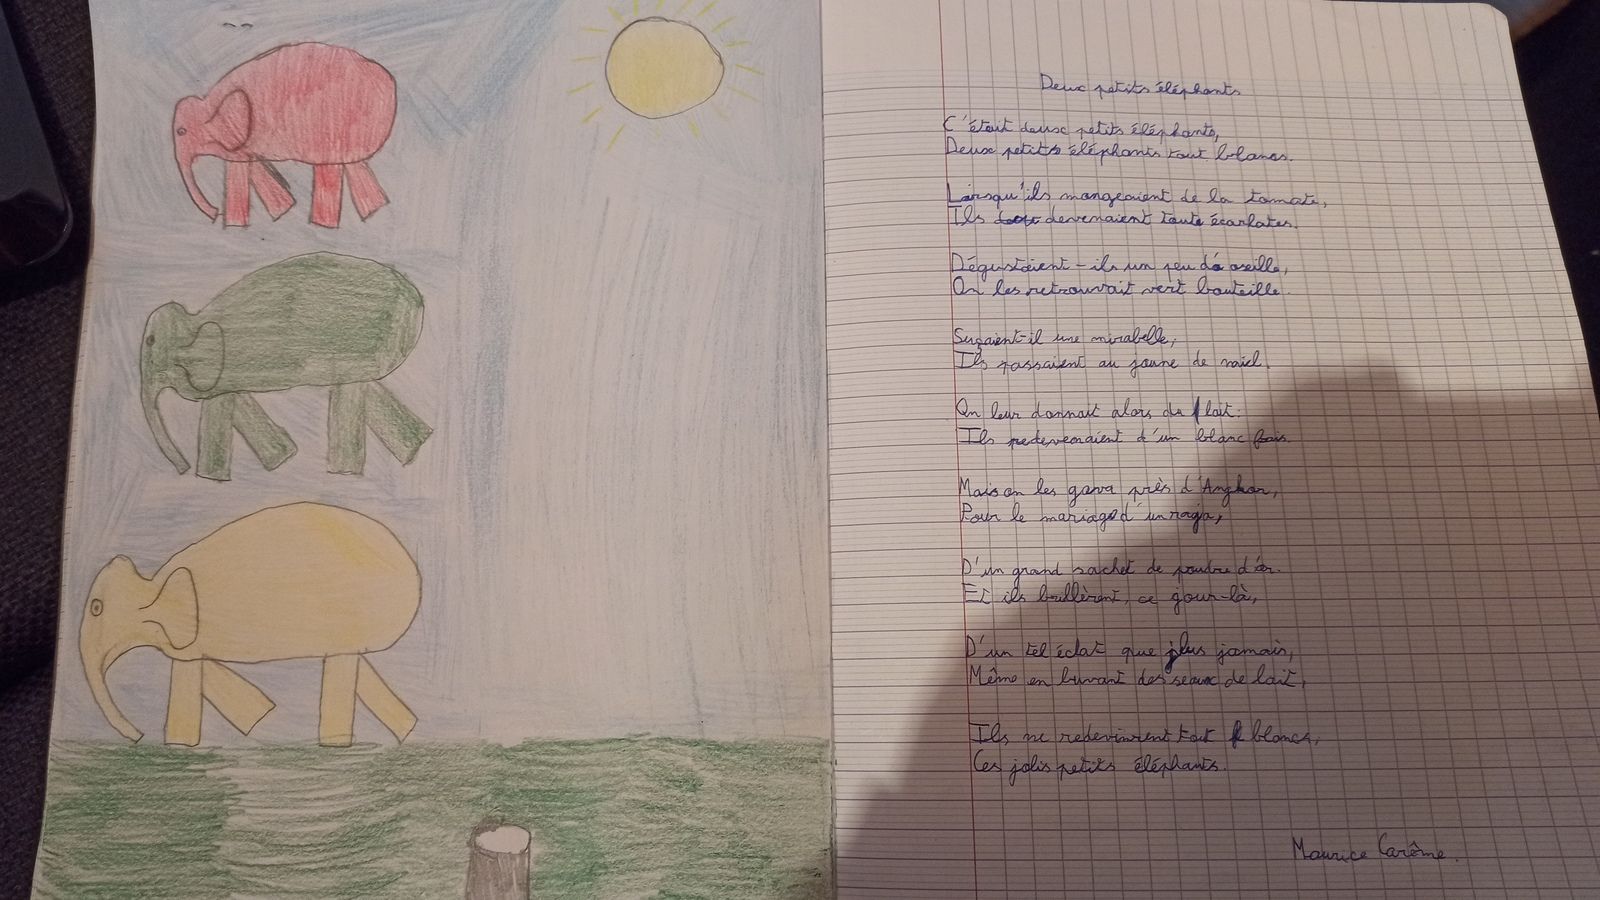 Deux petits éléphants
C'était deux petits éléphants,
Deux petits éléphants tout blancs.
Lorsqu'ils mangeaient de la tomate,
Ils devenaient toute écarlates.
Dégustaient-ils un peu d'oseille,
On les retrouvait vert bouteille.
Suçaient-il une mirabelle,
Ils passaient au jaune de miel.
On leur donnait alors du lait:
Ils redevenaient d'un blanc frais.
Mais on les gava près d'Angkor,
Pour le mariage d'un raja,
D'un grand sachet de poudre d'or.
Et ils brillèrent, ce jour-là,
D'un tel éclat que plus jamais,
Même en buvant des seaux de lait,
Ils ne redevinrent tout blancs,
Ces jolis petits éléphants.
Maurice Carême.